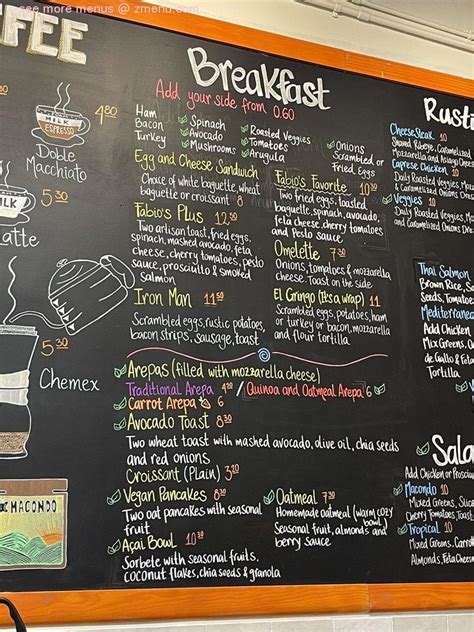 see more menus @ zmenu.com
FEE
MILK
ESPRESSO
4 80
Doble
Macchiato
MILK
5 30
Latte
5 30
Chemex
MACONDO
Breakfast
Add your side from 0.60
Ham
Bacon
Turkey
Spinach
Avocado
Mushrooms
Roasted Veggies
Tomatoes
Arugula
Onions
Scrambled or
Fried Eggs
Egg and Cheese Sandwich
Choice of white baguette, wheat
baguette or croissant 8
Fabio's Plus 12 50
Two artisan toast, fried eggs,
spinach, mashed avocado, feta
cheese, cherry tomatoes, pesto
sauce, prosciutto & smoked
salmon
Iron Man 11 50
Scrambled eggs, rustic potatoes,
bacon strips, sausage, toast
Fabio's Favorite 10 30
Two fried eggs, toasted
baguette, spinach, avocado,
feta cheese, cherry tomatoes
and pesto sauce
Omelette 7 30
Onions, tomatoes & mozzarella
cheese. Toast on the side
El Gringo (It's a wrap) 11
Scrambled eggs, potatoes, ham
or turkey or bacon, mozzarella
and flour tortilla
Arepas (filled with mozzarella cheese)
Traditional Arepa 4 80 / Quinoa and Oatmeal Arepa 6
Carrot Arepa 6
Avocado Toast 8 30
Two wheat toast with mashed avocado, olive oil, chia seeds
and red onions
Croissant (Plain) 3 20
Vegan Pancakes 8 30
Two oat pancakes with seasonal
fruit
Açai Bowl 10 30
Sorbete with seasonal fruits,
coconut flakes, chia seeds & granola
Oatmeal 7 30
Homemade oatmeal (warm cozy
bowl)
Seasonal fruit, almonds and
berry sauce
Rusti
CheeseSteak 10
Shaved Ribeye, Caramelized
Mozzarella and Asiago Cheese
Caprese Chicken 10
Daily Roasted Veggies,
& Caramelized Onions
Veggies 10
Daily Roasted Veggies,
and Caramelized Onions
Thai Salmon
Brown Rice,
Seeds, Tomatoes
Mediterranean
Add Chicken
Mix Greens,
de Gallo & Feta
Tortilla
Sala
Add Chicken or Prosciu
Macondo 10
Mixed Greens,
Cherry Tomatoes,
Tropical 10
Mixed Greens, Carrot
Almonds, Feta Cheese